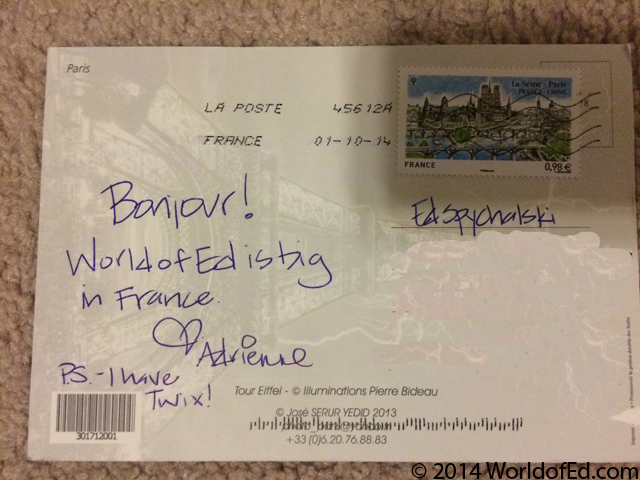 Paris
LA POSTE 45612A
FRANCE 01-10-14
La Seine - Paris
FRANCE - CHINE
FRANCE 0,98 €
Bonjour!
WorldofEd is big
in France.
♡ Adrienne
P.S. - I have
Twix!
Ed Spychalski
Tour Eiffel - © Illuminations Pierre Bideau
© José SERUR YEDID 2013
+33 (0)6.20.76.88.83
301712001
© 2014 WorldofEd.com